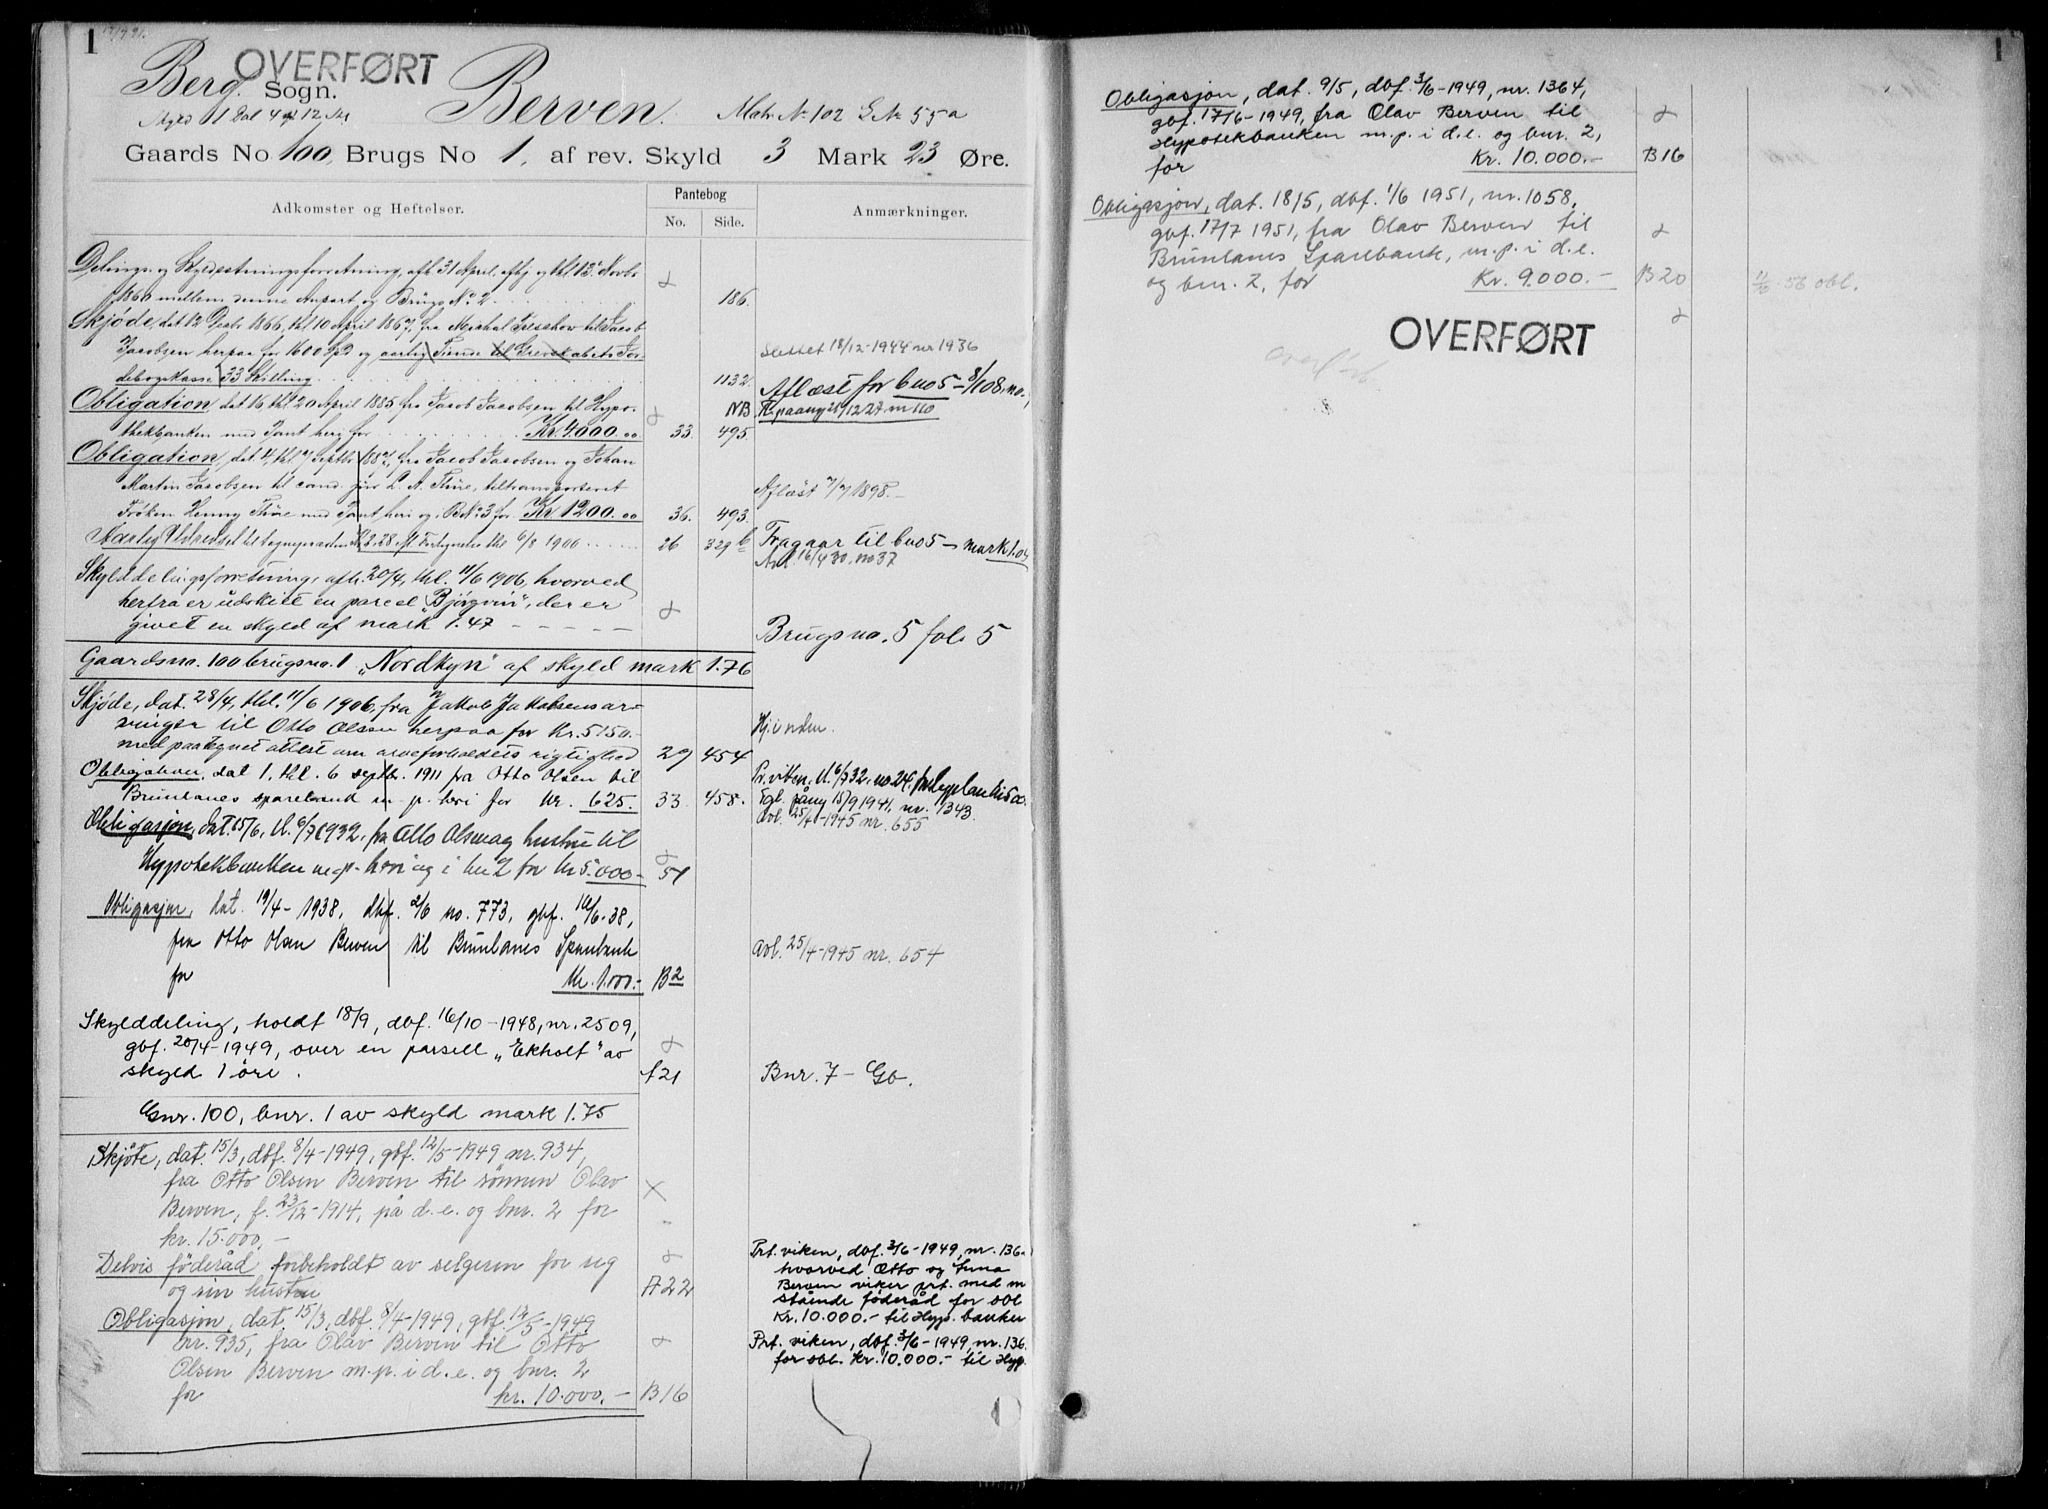 1
OVERFØRT
Berg Sogn.
Berven.
Skyld 1 Dal 4 ort 12 Sk
Matr No 102 L No 55a
Gaards No 100, Brugs No 1, af rev. Skyld 3 Mark 23 Øre.
Adkomster og Heftelser.
Pantebog
No. Side.
Anmærkninger.
Delings- og Skyldsætningsforretning, afh. 31 April, afhj. og thl. 13 Novbr
1860 mellem denne Anpart og Brugs No 2 186.
Skjøde, dat. 12 Decbr 1866, thl. 10 April 1867, fra Michal Treschow til Jacob
Jacobsen herpaa for 1600 Spd og aarlig Tiende til Grevskabets Jor-
debogskasse 33 Skilling 1132.
Slettet 18/12-1944 nr 1936
Obligation dat 16, thl 20 April 1885 fra Jacob Jacobsen til Hypo-
thekbanken med Pant heri for Kr. 4000.00 33. 495.
NB
Aflæst for bno 5 - 8/1 08, no.,
Tl. paany 28/12 27 nr 110
Obligation, dat. 4, thl. 7 Septbr 1887, fra Jacob Jacobsen og Johan
Martin Jacobsen til cand. jur. L. A. Thire, tiltransporteret
Frøken Henny Thire med Pant heri og i B.No 3 for Kr. 1200.00 36. 493.
Aflæst 7/7 1898.
Aarlig Udredsel til Sognepræsten Kr 3.28 efl. Fortegnelse thl 6/8 1900 26 329 b
Fragaar til bno 5 - mark 1.04
Avl. 16/4 30, no 37
Skylddelingsforretning, afh. 20/4, thl. 11/6 1906, hvorved
herfra er udskilt en parcel "Bjørgvin", der er
givet en skyld af mark 1.47
Brugsno. 5 fol. 5
Gaardsno. 100 brugsno. 1 "Nordkyn" af skyld mark 1.76
Skjøde, dat. 28/4, thl. 11/6 1906, fra Jakob Jakobsens ar-
vinger til Otto Olsen herpaa for Kr. 5150.-
med paategnet attest om arveforholdets rigtighed 29 454
Hj. i orden.
Obligation, dat 1, thl. 6 septbr. 1911 fra Otto Olsen til
Brunlanes sparebank m. p. heri for Kr. 625. 33. 458.
Pr. viken. tl. 6/7 32. no 24.
Tgl. påny 15/9 1941, nr. 1343
Avl. 25/4-1945 nr. 655
Obligasjon, dat. 15/6, tl. 6/7 1932, fra Otto Olsen og hustru til
Hypotekbanken m.p. heri og i bnr 2 for Kr 5.000- 51
Obligasjon, dat. 19/4 - 1938, dbf. 2/6 no. 773, gbf. 16/6. 38,
fra Otto Olsen Berven til Brunlanes Sparebank
for Kr. 1.000.- B2
Avl. 25/4-1945 nr. 654
Skylddeling, holdt 18/9, dbf. 16/10-1948, nr. 2509,
gbf. 20/4-1949, over en parsell "Ekholt" av
skyld 1 øre. A21
Bnr. 7 - Gb.
Gnr. 100, bnr. 1 av skyld mark 1.75
Skjøte, dat. 15/3, dbf. 8/4-1949, gbf. 12/5-1949 nr. 934,
fra Otto Olsen Berven til sønnen Olav
Berven, f. 23/12-1914, på d.e. og bnr. 2 for
kr. 15.000,-
Delvis føderåd forbeholdt av selgeren for seg
og sin hustru A22
Prt. viken, dbf. 3/6-1949, nr. 136
hvorved Otto og
Berven viker prt. med
stående føderåd for obl
Kr. 10.000.- til Hyp. banken
Obligasjon, dat. 15/3, dbf. 8/4-1949, gbf. 12/5-1949
nr. 935, fra Olav Berven til Otto
Olsen Berven m.p. i d.e. og bnr. 2
for kr. 10.000,- B16
Prt. viken, dbf. 3/6-1949, nr. 136
for obl. kr. 10.000.- til Hyp.
1
Obligasjon, dat. 9/5, dbf. 3/6-1949, nr. 1364,
gbf. 17/6-1949, fra Olav Berven til
Hypotekbanken m.p. i d.e. og bnr. 2,
for Kr. 10.000.- B16
Obligasjon, dat. 18/5, dbf. 1/6 1951, nr. 1058,
gbf. 17/7 1951, fra Olav Berven til
Brunlanes Sparebank, m.p. i d.e.
og bnr. 2, for Kr. 9.000.- B20
11/6-56 obl.
OVERFØRT
overført